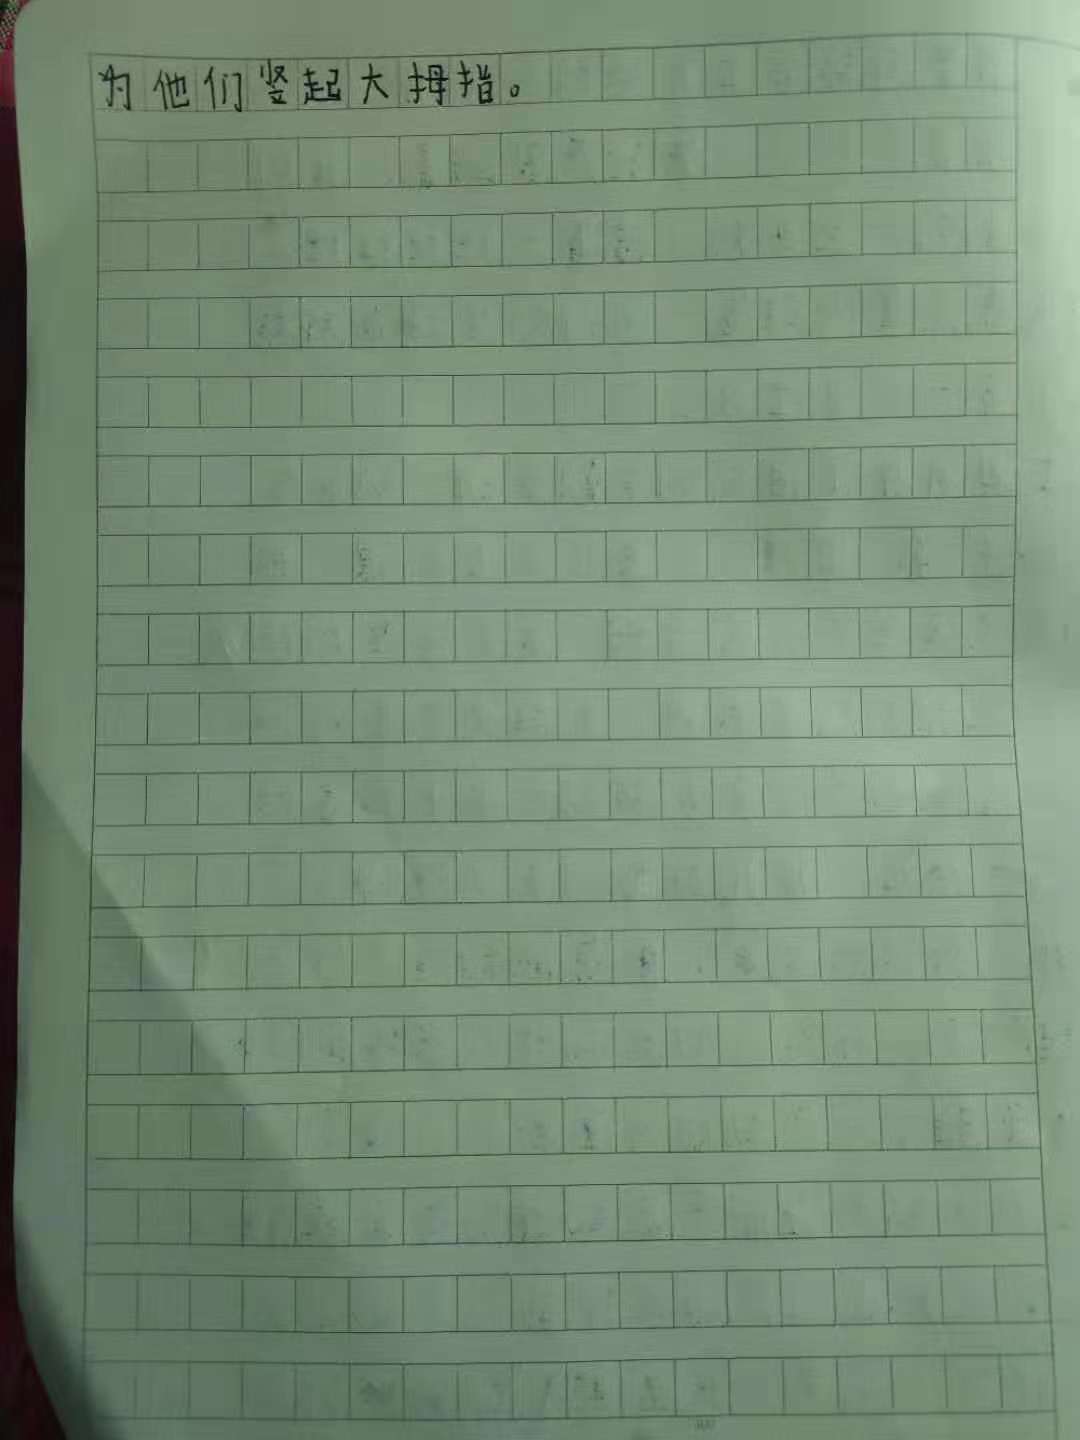 为他们竖起大拇指。